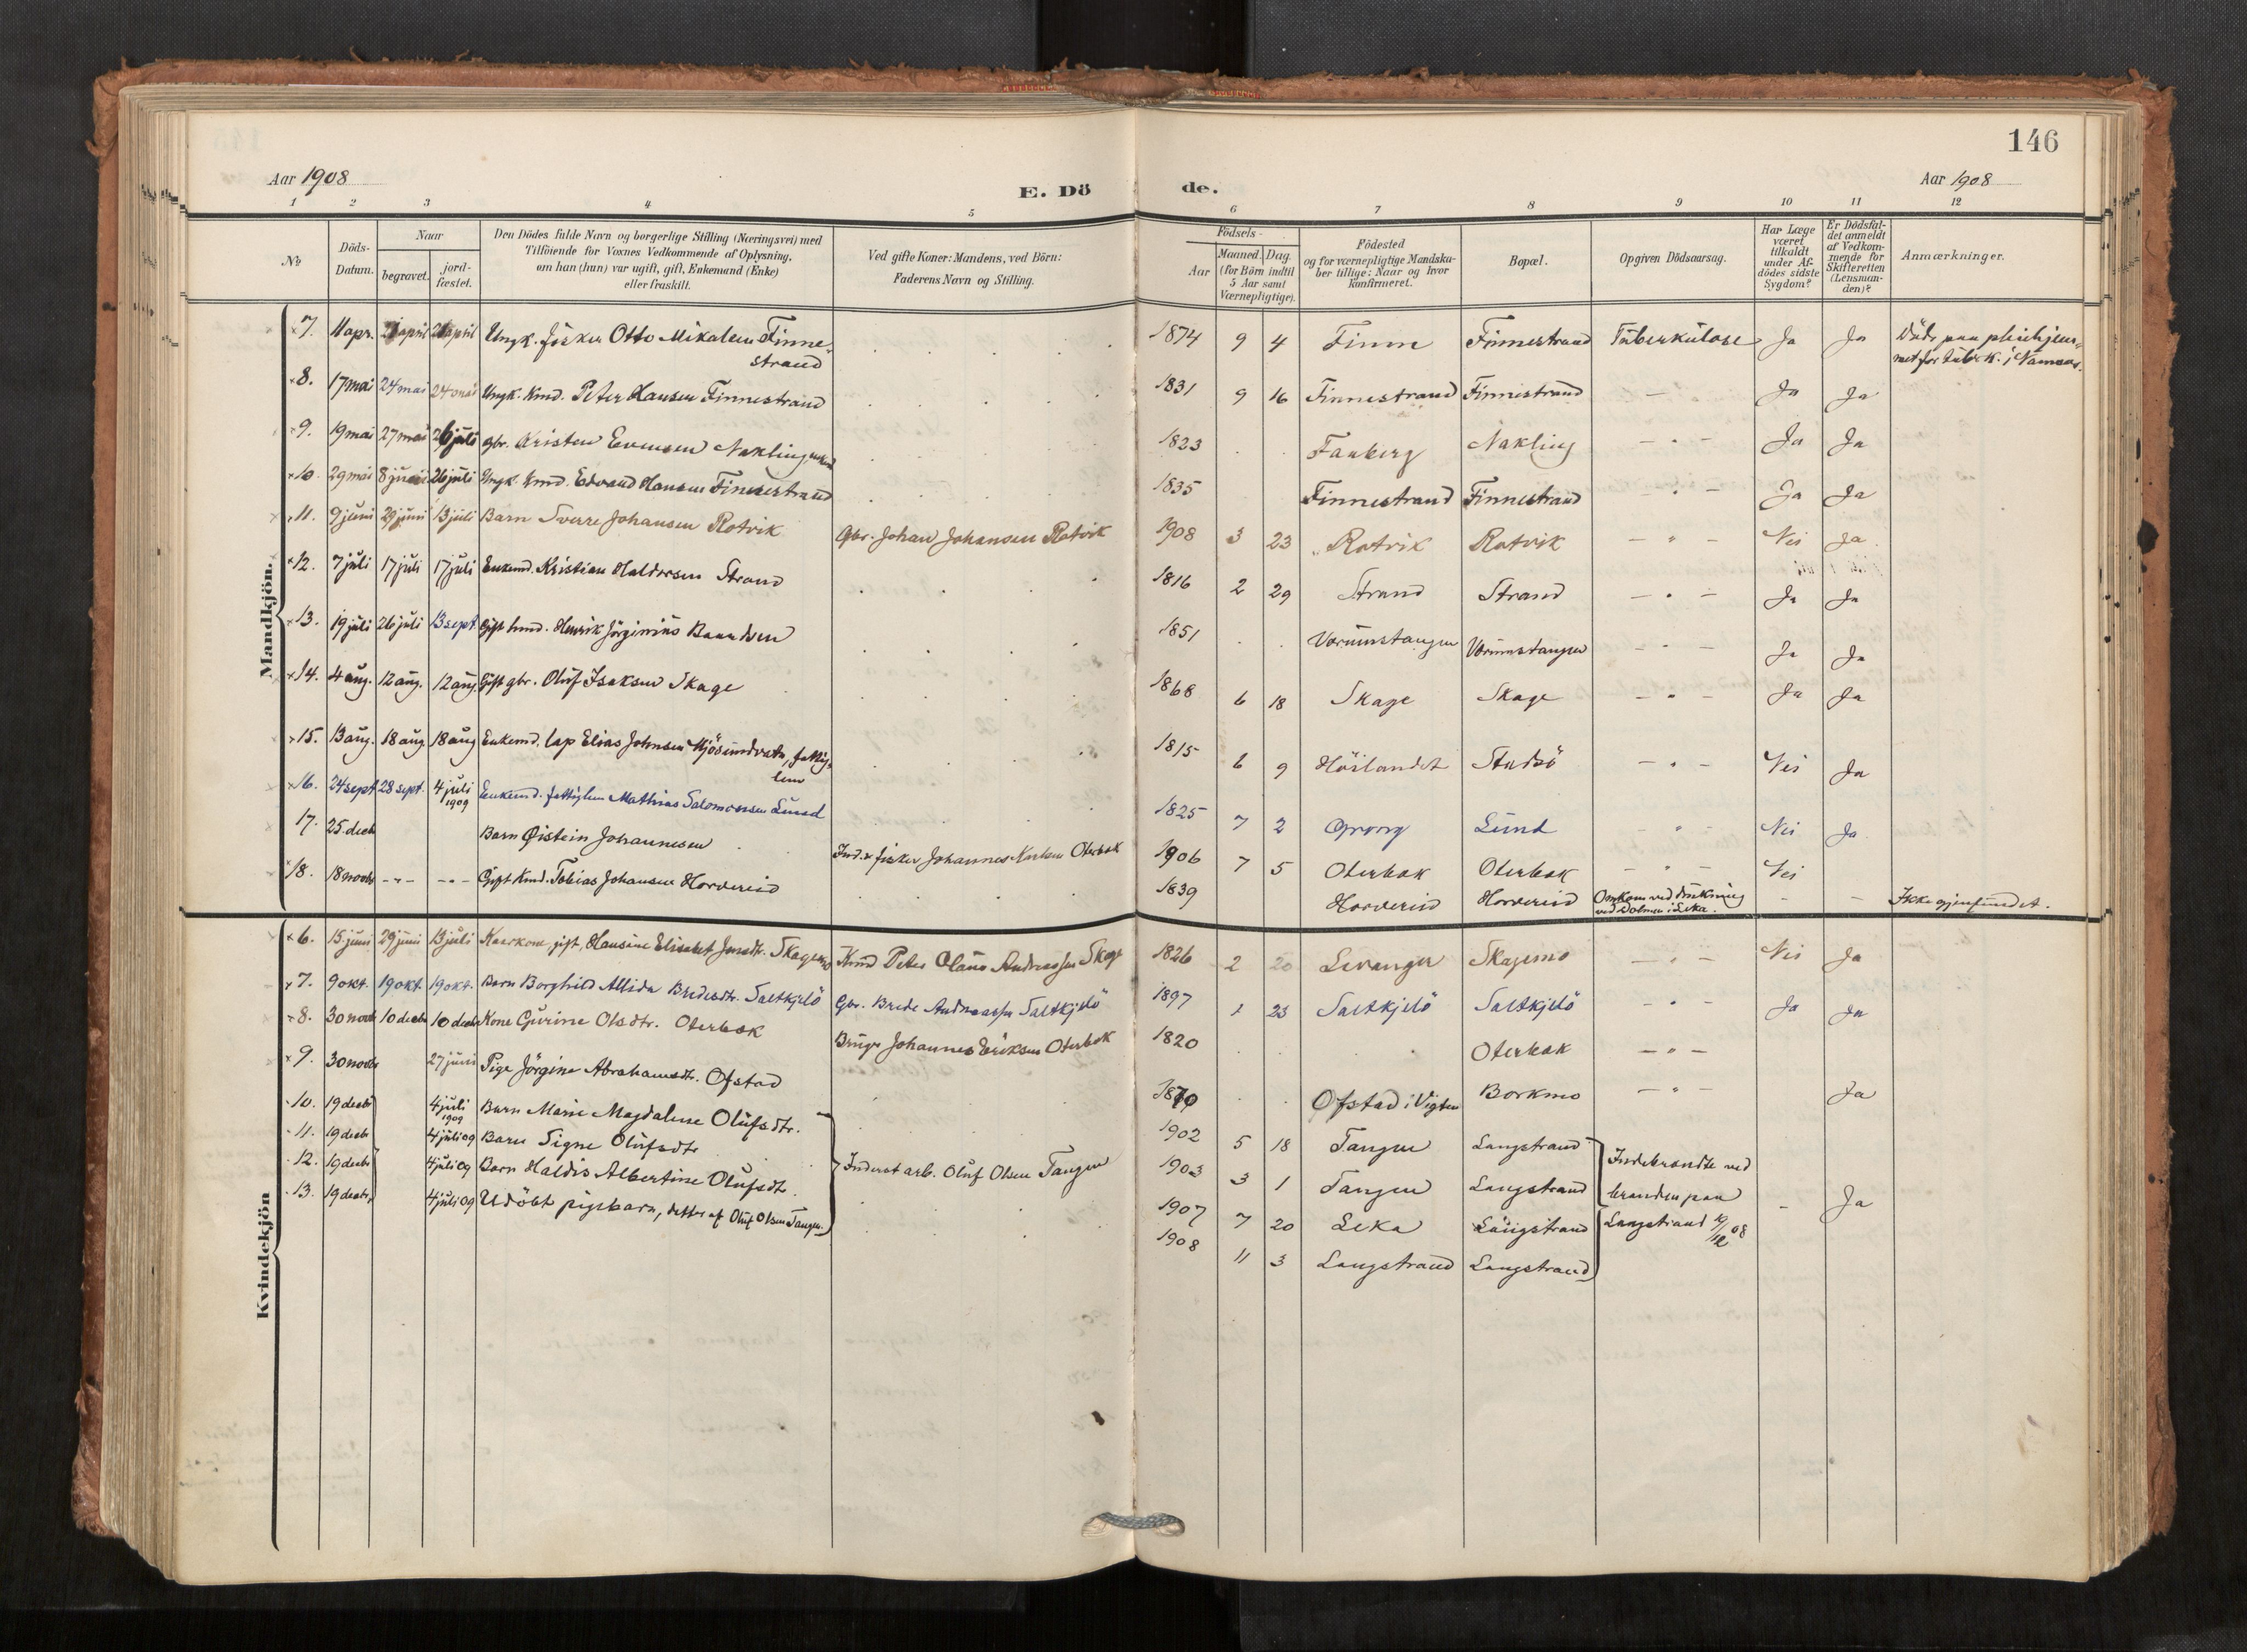 146
Aar 1908
E. Dö
de.
Aar 1908
1 2 3 4 5 6 7 8 9 10 11 12
No
Döds-
Datum.
Naar
begravet.
jord-
fæstet.
Den Dödes fulde Navn og borgerlige Stilling (Næringsvei) med
Tilföiende for Voxnes Vedkommende af Oplysning,
om han (hun) var ugift, gift, Enkemand (Enke)
eller fraskilt.
Ved gifte Koner: Mandens, ved Börn:
Faderens Navn og Stilling.
Födsels-
Aar
Maaned. Dag.
(for Börn indtil
5 Aar samt
Værnepligtige).
Födested
og for værnepligtige Mandska-
ber tillige: Naar og hvor
konfirmeret.
Bopæl.
Opgiven Dödsaarsag.
Har Læge
været
tilkaldt
under Af-
dödes sidste
Sygdom?
Er Dödsfal-
det anmeldt
af Vedkom-
mende for
Skifteretten
(Lensman-
den)?
Anmærkninger.
Mandkjön.
7. 11 apr. 21 april 21 april Ungk. fisker Otto Mikalsen Finne-
strand 1874 9 4 Finne Finnestrand Tuberkulose Ja Ja Döde paa pleiehjem-
met for tuberk. i Namsos.
8. 17 mai 24 mai 24 mai Ungk. kmd. Peter Hansen Finnestrand 1831 9 16 Finnestrand Finnestrand — Ja Ja
9. 19 mai 27 mai 26 juli gbr. Kristen Evensen Nakling 1823 Faaberg Nakling — " — Ja Ja
10. 29 mai 8 juni 26 juli Ungk. kmd. Edvard Hansen Finnestrand 1835 Finnestrand Finnestrand — " — Ja Ja
11. 9 juni 29 juni 13 juli Barn Sverre Johansen Rotvik Gbr. Johan Johansen Rotvik 1908 3 23 Rotvik Rotvik — " — Nei Ja
12. 7 juli 17 juli 17 juli Enkemd. Kristian Haldorsen Strand 1816 2 29 Strand Strand — " — Ja Ja
13. 19 juli 26 juli 13 sept. Gift kmd. Henrik Jörginius 1851 Værumstangen Værumstangen — " — Ja Ja
14. 4 aug. 12 aug. 12 aug. Gift gbr. Oluf Isaksen Skage 1868 6 18 Skage Skage — " — Ja Ja
15. 13 aug. 18 aug. 18 aug Enkemd. lap Elias Johnsen Mjösundvatn, fattig-
lem 1815 6 9 Höilandet Studsö — " — Nei Ja
16. 24 sept 28 sept. 4 juli
1909 Enkemd. fattiglem Mathias Salomonsen Lund 1825 7 2 Lund " Nei Ja
17. 25 decb Barn Øistein Johannesen Ind. & fisker Johannes Oterbak 1906 7 5 Oterbak Oterbak — " — Nei
18. 18 novbr — " — — " — Gift Kmd. Tobias Johansen Horvereid 1839 Horvereid Horvereid Omkom ved drukning
ved Dolmen i Leka. - — Ikke gjenfundet.
Kvindekjön
6. 15 juni 29 juni 13 juli Kaarkone, gift, Hansine Elisabet Jensdtr. Skagemo Kmd Peter Olaus Andreassen Skage 1826 2 20 Levanger Skagemo — " — Nei Ja
7. 9 okt. 19 okt. 19 okt. Barn Borghild Allida Bredesdtr. Saltkjelö Gbr. Brede Andreassen Saltkjelö 1897 1 23 Saltkjelö Saltkjelö — " — Ja Ja
8. 30 novb 10 decbr 10 decbr Kone Gurine Olsdtr. Oterbak Bruger Johannes Eriksen Oterbak 1820 Oterbak — " —
9. 30 novbr 27 juni Pige Jörgine Abrahamsdtr. Ofstad 1870 Ofstad i Vigten Borkmo — " — Ja
10. 19 decbr 4 juli
1909 Barn Marie Magdalene Olufsdtr. 1902 5 18 Tangen Langstrand Indebrændte ved
11. 19 decbr 4 juli 09 Barn Signe Olufsdtr 1903 3 1 Tangen Langstrand branden paa
12. 19 decbr 4 juli 09 Barn Haldis Albertine Olufsdtr. Inderst arb. Oluf Olsen Tangen 1907 7 20 Leka Langstrand Langstrand 19/12 08 - Ja
13. 19 decbr 4 juli 09 Udöbt pigebarn, datter af Oluf Olsen Tangen. 1908 11 3 Langstrand Langstrand